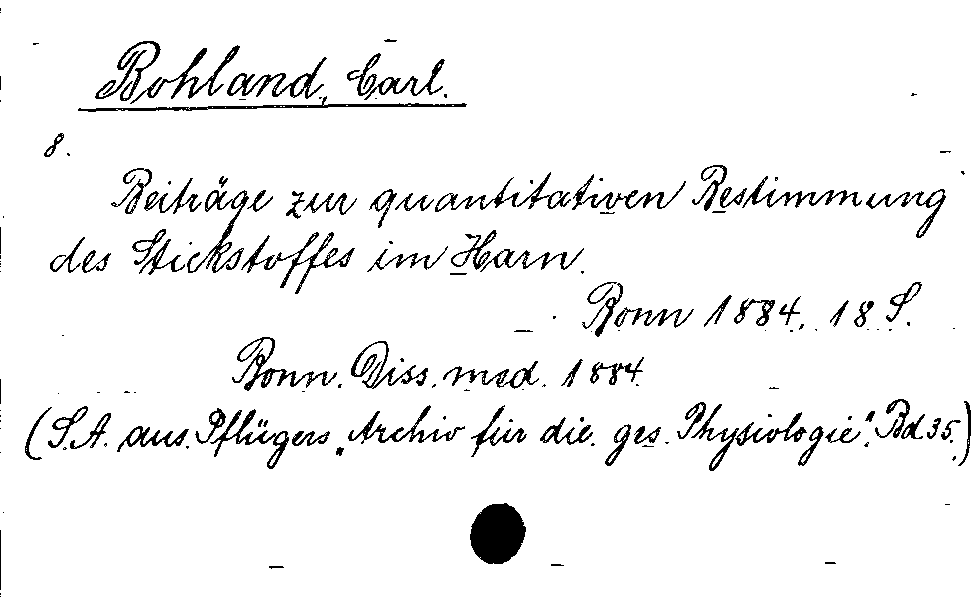 Bohland, Carl.
8.
Beiträge zur quantitativen Bestimmung
des Stickstoffes im Harn.
Bonn 1884. 18 S.
Bonn. Diss. med. 1884
(S.A. aus Pflügers „Archiv für die ges. Physiologie“. Bd 35.)